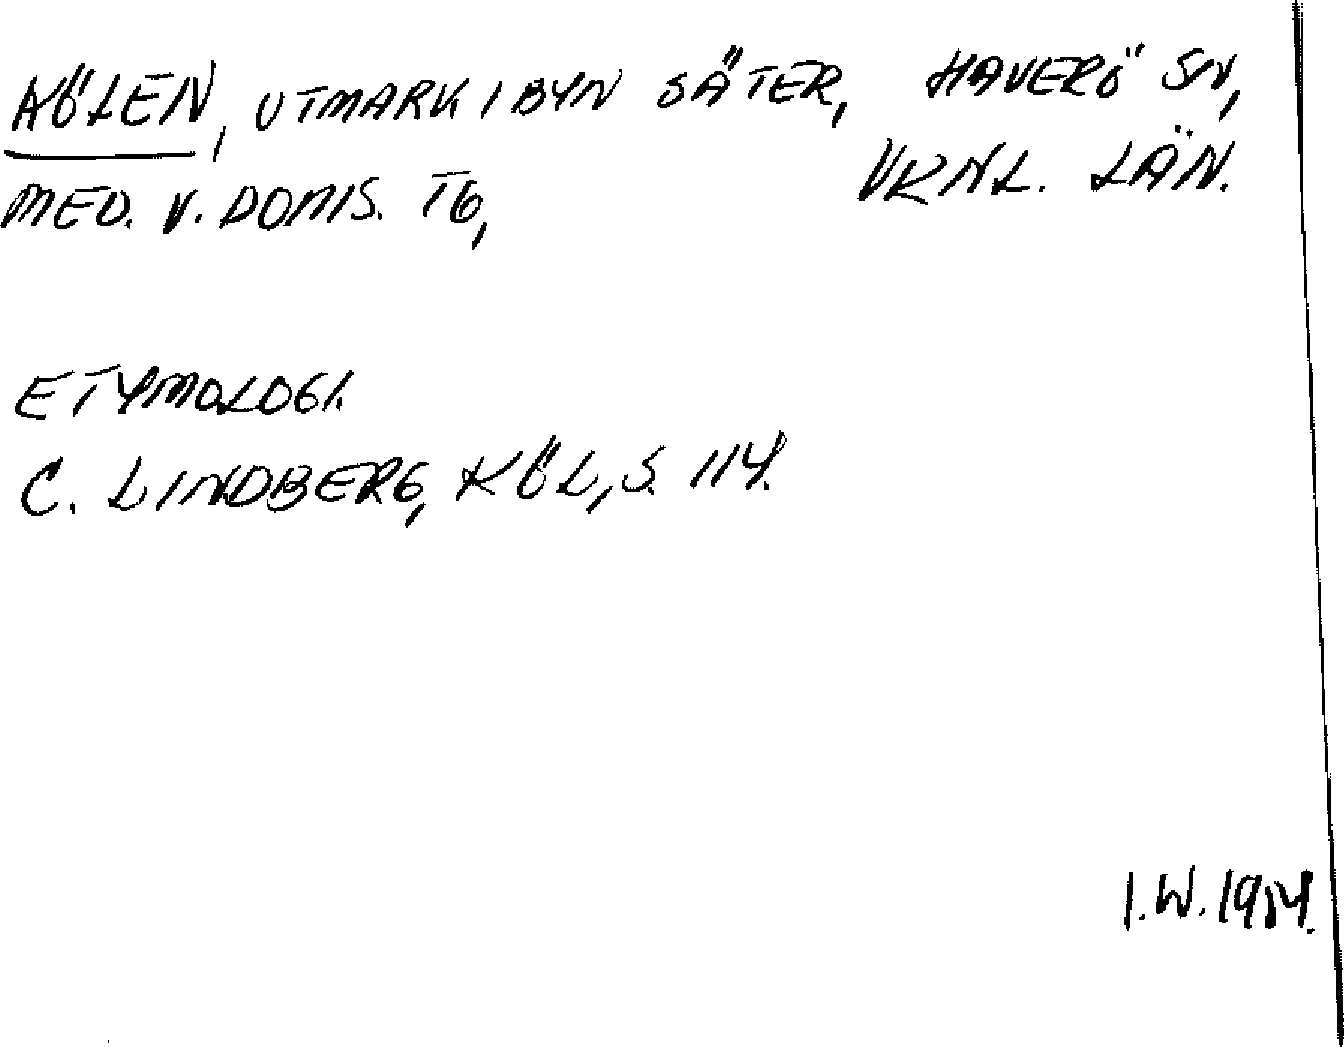 KÖLEN, UTMARK I BYN SÄTER, HAVERÖ SN,
VRNL. LÄN.
MED. V. DOMS. TG,
ETYMOLOGI.
C. LINDBERG, KÖL, S. 114.
I.W. 1984.